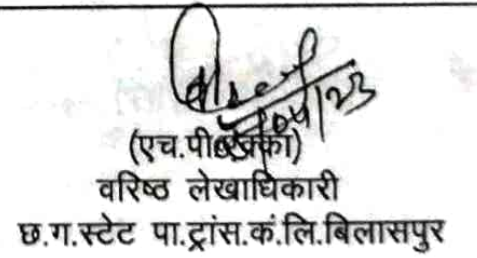 (एच.पी.एक्का)
वरिष्ठ लेखाधिकारी
छ.ग.स्टेट पा.ट्रांस.कं.लि.बिलासपुर